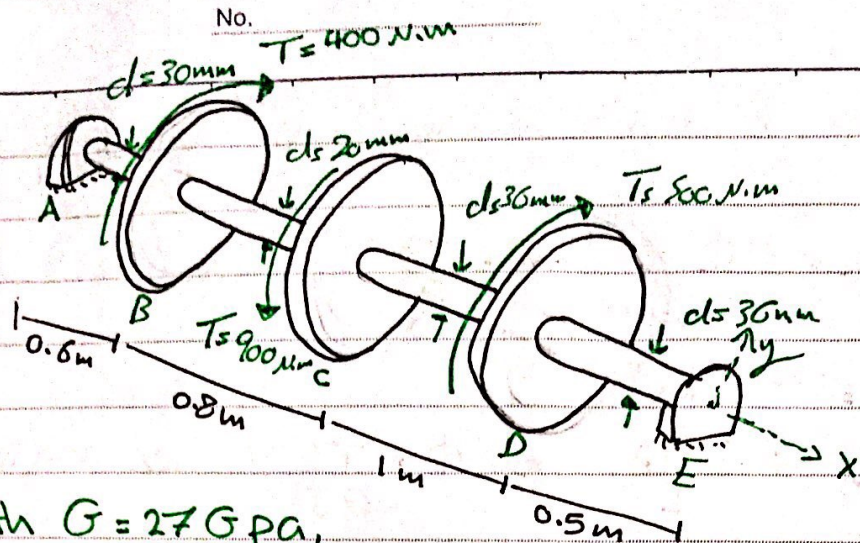 No.
T = 400 N.m
d = 30mm
d = 20mm
d = 36mm
T = 500 N.m
A
B
T = 900 N.m
C
d = 36mm
y
0.6m
0.8m
D
x
E
1m
0.5m
G = 27 Gpa,